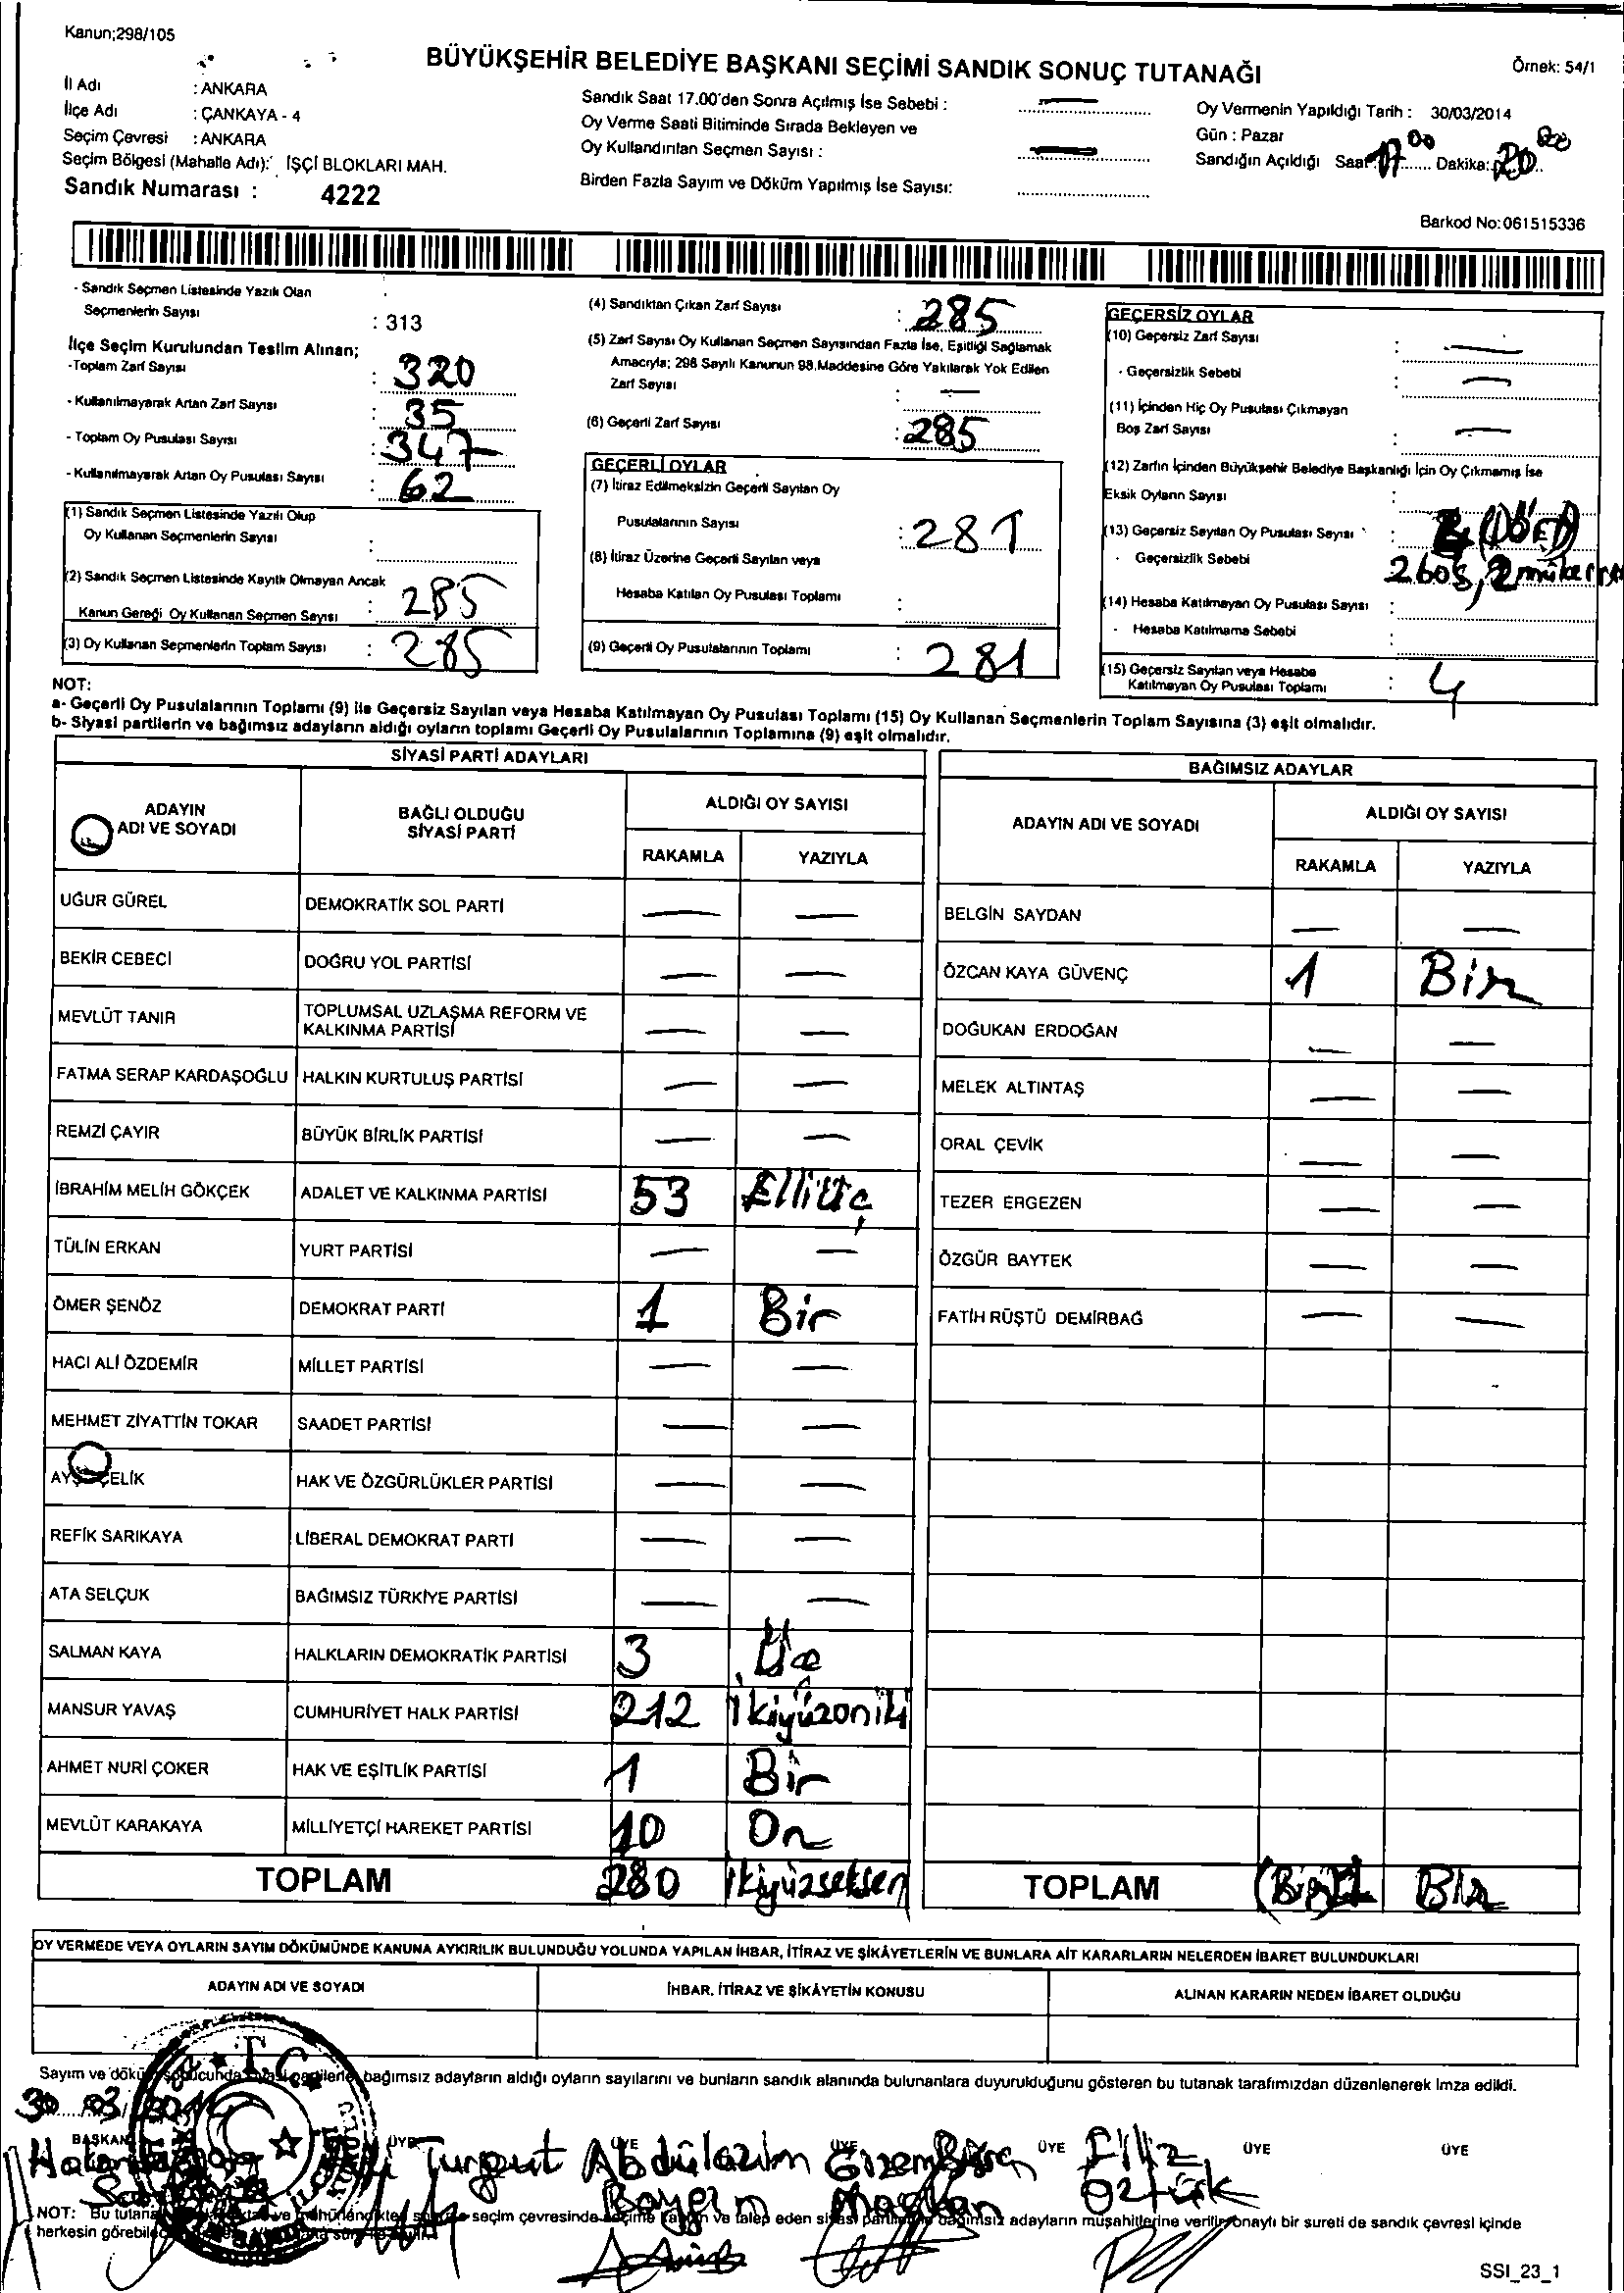 Kanun;298/105
BÜYÜKŞEHİR BELEDİYE BAŞKANI SEÇİMİ SANDIK SONUÇ TUTANAĞI
Örnek: 54/1
İl Adı : ANKARA
İlçe Adı : ÇANKAYA - 4
Seçim Çevresi : ANKARA
Seçim Bölgesi (Mahalle Adı): İŞÇİ BLOKLARI MAH.
Sandık Numarası : 4222
Sandık Saat 17.00'den Sonra Açılmış İse Sebebi : —
Oy Verme Saati Bitiminde Sırada Bekleyen ve
Oy Kullandırılan Seçmen Sayısı : —
Birden Fazla Sayım ve Döküm Yapılmış İse Sayısı:
Oy Vermenin Yapıldığı Tarih : 30/03/2014
Gün : Pazar
Sandığın Açıldığı Saat: 17 00 Dakika:
Barkod No:061515336
- Sandık Seçmen Listesinde Yazılı Olan
Seçmenlerin Sayısı : 313
İlçe Seçim Kurulundan Teslim Alınan;
-Toplam Zarf Sayısı : 320
- Kullanılmayarak Artan Zarf Sayısı : 35
- Toplam Oy Pusulası Sayısı : 347
- Kullanılmayarak Artan Oy Pusulası Sayısı : 62
(1) Sandık Seçmen Listesinde Yazılı Olup
Oy Kullanan Seçmenlerin Sayısı :
(2) Sandık Seçmen Listesinde Kayıtlı Olmayan Ancak
Kanun Gereği Oy Kullanan Seçmen Sayısı : 285
(3) Oy Kullanan Seçmenlerin Toplam Sayısı : 285
(4) Sandıktan Çıkan Zarf Sayısı : 285
(5) Zarf Sayısı Oy Kullanan Seçmen Sayısından Fazla İse, Eşitliği Sağlamak
Amacıyla; 298 Sayılı Kanunun 98.Maddesine Göre Yakılarak Yok Edilen
Zarf Sayısı : —
(6) Geçerli Zarf Sayısı : 285
GEÇERLİ OYLAR
(7) İtiraz Edilmeksizin Geçerli Sayılan Oy
Pusulalarının Sayısı : 281
(8) İtiraz Üzerine Geçerli Sayılan veya
Hesaba Katılan Oy Pusulası Toplamı :
(9) Geçerli Oy Pusulalarının Toplamı : 281
GEÇERSİZ OYLAR
(10) Geçersiz Zarf Sayısı : —
- Geçersizlik Sebebi : —
(11) İçinden Hiç Oy Pusulası Çıkmayan
Boş Zarf Sayısı : —
(12) Zarfın İçinden Büyükşehir Belediye Başkanlığı İçin Oy Çıkmamış İse
Eksik Oyların Sayısı :
(13) Geçersiz Sayılan Oy Pusulası Sayısı :
- Geçersizlik Sebebi 2 boş, 2
(14) Hesaba Katılmayan Oy Pusulası Sayısı :
- Hesaba Katılmama Sebebi :
(15) Geçersiz Sayılan veya Hesaba
Katılmayan Oy Pusulası Toplamı : 4
NOT:
a- Geçerli Oy Pusulalarının Toplamı (9) ile Geçersiz Sayılan veya Hesaba Katılmayan Oy Pusulası Toplamı (15) Oy Kullanan Seçmenlerin Toplam Sayısına (3) eşit olmalıdır.
b- Siyasi partilerin ve bağımsız adayların aldığı oyların toplamı Geçerli Oy Pusulalarının Toplamına (9) eşit olmalıdır.
SİYASİ PARTİ ADAYLARI
ADAYIN ADI VE SOYADI
BAĞLI OLDUĞU SİYASİ PARTİ
ALDIĞI OY SAYISI
RAKAMLA YAZIYLA
UĞUR GÜREL DEMOKRATİK SOL PARTİ — —
BEKİR CEBECİ DOĞRU YOL PARTİSİ — —
MEVLÜT TANIR TOPLUMSAL UZLAŞMA REFORM VE KALKINMA PARTİSİ — —
FATMA SERAP KARDAŞOĞLU HALKIN KURTULUŞ PARTİSİ — —
REMZİ ÇAYIR BÜYÜK BİRLİK PARTİSİ — —
İBRAHİM MELİH GÖKÇEK ADALET VE KALKINMA PARTİSİ 53 Elliüç
TÜLİN ERKAN YURT PARTİSİ — —
ÖMER ŞENÖZ DEMOKRAT PARTİ 1 Bir
HACI ALİ ÖZDEMİR MİLLET PARTİSİ — —
MEHMET ZİYATTİN TOKAR SAADET PARTİSİ — —
ÇELİK HAK VE ÖZGÜRLÜKLER PARTİSİ — —
REFİK SARIKAYA LİBERAL DEMOKRAT PARTİ — —
ATA SELÇUK BAĞIMSIZ TÜRKİYE PARTİSİ — —
SALMAN KAYA HALKLARIN DEMOKRATİK PARTİSİ 3 Üç
MANSUR YAVAŞ CUMHURİYET HALK PARTİSİ 212 İkiyüzoniki
AHMET NURİ ÇOKER HAK VE EŞİTLİK PARTİSİ 1 Bir
MEVLÜT KARAKAYA MİLLİYETÇİ HAREKET PARTİSİ 10 On
TOPLAM 280 İkiyüzseksen
BAĞIMSIZ ADAYLAR
ADAYIN ADI VE SOYADI
ALDIĞI OY SAYISI
RAKAMLA YAZIYLA
BELGİN SAYDAN — —
ÖZCAN KAYA GÜVENÇ 1 Bir
DOĞUKAN ERDOĞAN — —
MELEK ALTINTAŞ — —
ORAL ÇEVİK — —
TEZER ERGEZEN — —
ÖZGÜR BAYTEK — —
FATİH RÜŞTÜ DEMİRBAĞ — —
TOPLAM Bir
OY VERMEDE VEYA OYLARIN SAYIM DÖKÜMÜNDE KANUNA AYKIRILIK BULUNDUĞU YOLUNDA YAPILAN İHBAR, İTİRAZ VE ŞİKÂYETLERİN VE BUNLARA AİT KARARLARIN NELERDEN İBARET BULUNDUKLARI
ADAYIN ADI VE SOYADI
İHBAR, İTİRAZ VE ŞİKÂYETİN KONUSU
ALINAN KARARIN NEDEN İBARET OLDUĞU
Sayım ve bağımsız adayların aldığı oyların sayılarını ve bunların sandık alanında bulunanlara duyurulduğunu gösteren bu tutanak tarafımızdan düzenlenerek imza edildi.
30 03
T.C.
BAŞKAN ÜYE ÜYE ÜYE ÜYE ÜYE ÜYE
Turgut Abdülazim Gizem Filiz
Öztürk
NOT: Bu seçim çevresinde ve talep eden bağımsız adayların müşahitlerine verilir, onaylı bir sureti de sandık çevresi içinde
herkesin
SSI_23_1